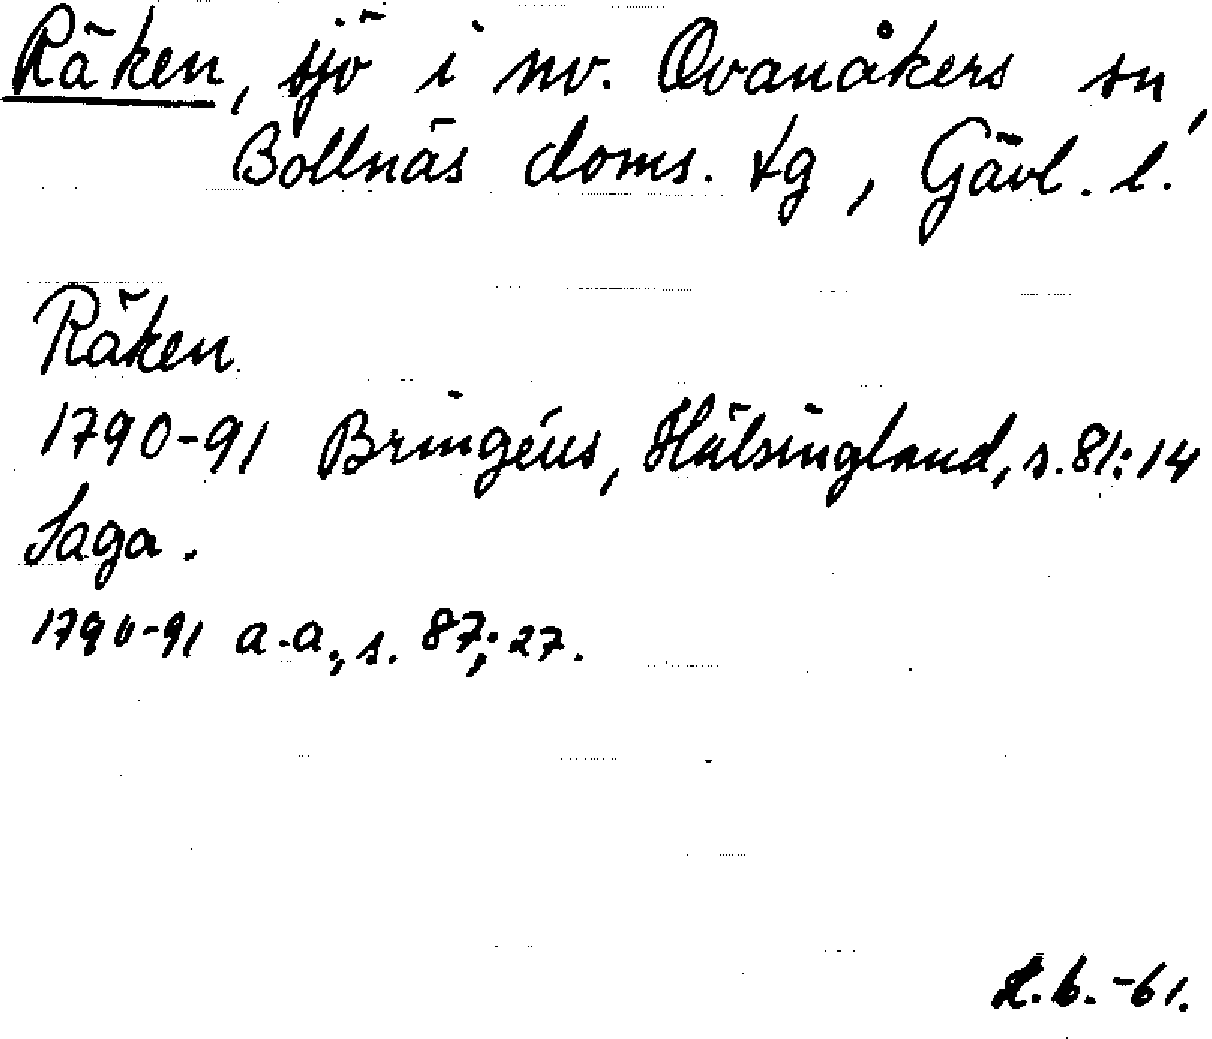 Räken, sjö i nv. Ovanåkers sn,
Bollnäs doms. tg, Gävl. l.
Räken
1790-91 Bringéus, Hälsingland, s. 81:14
Saga.
1790-91 a.a., s. 87; 27.
-61.